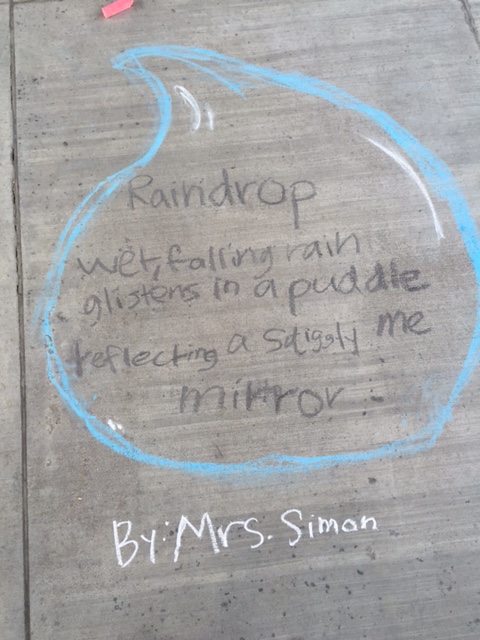 Raindrop
wet, falling rain
glistens in a puddle
reflecting a sqiggly me
mirror
By: Mrs. Simon